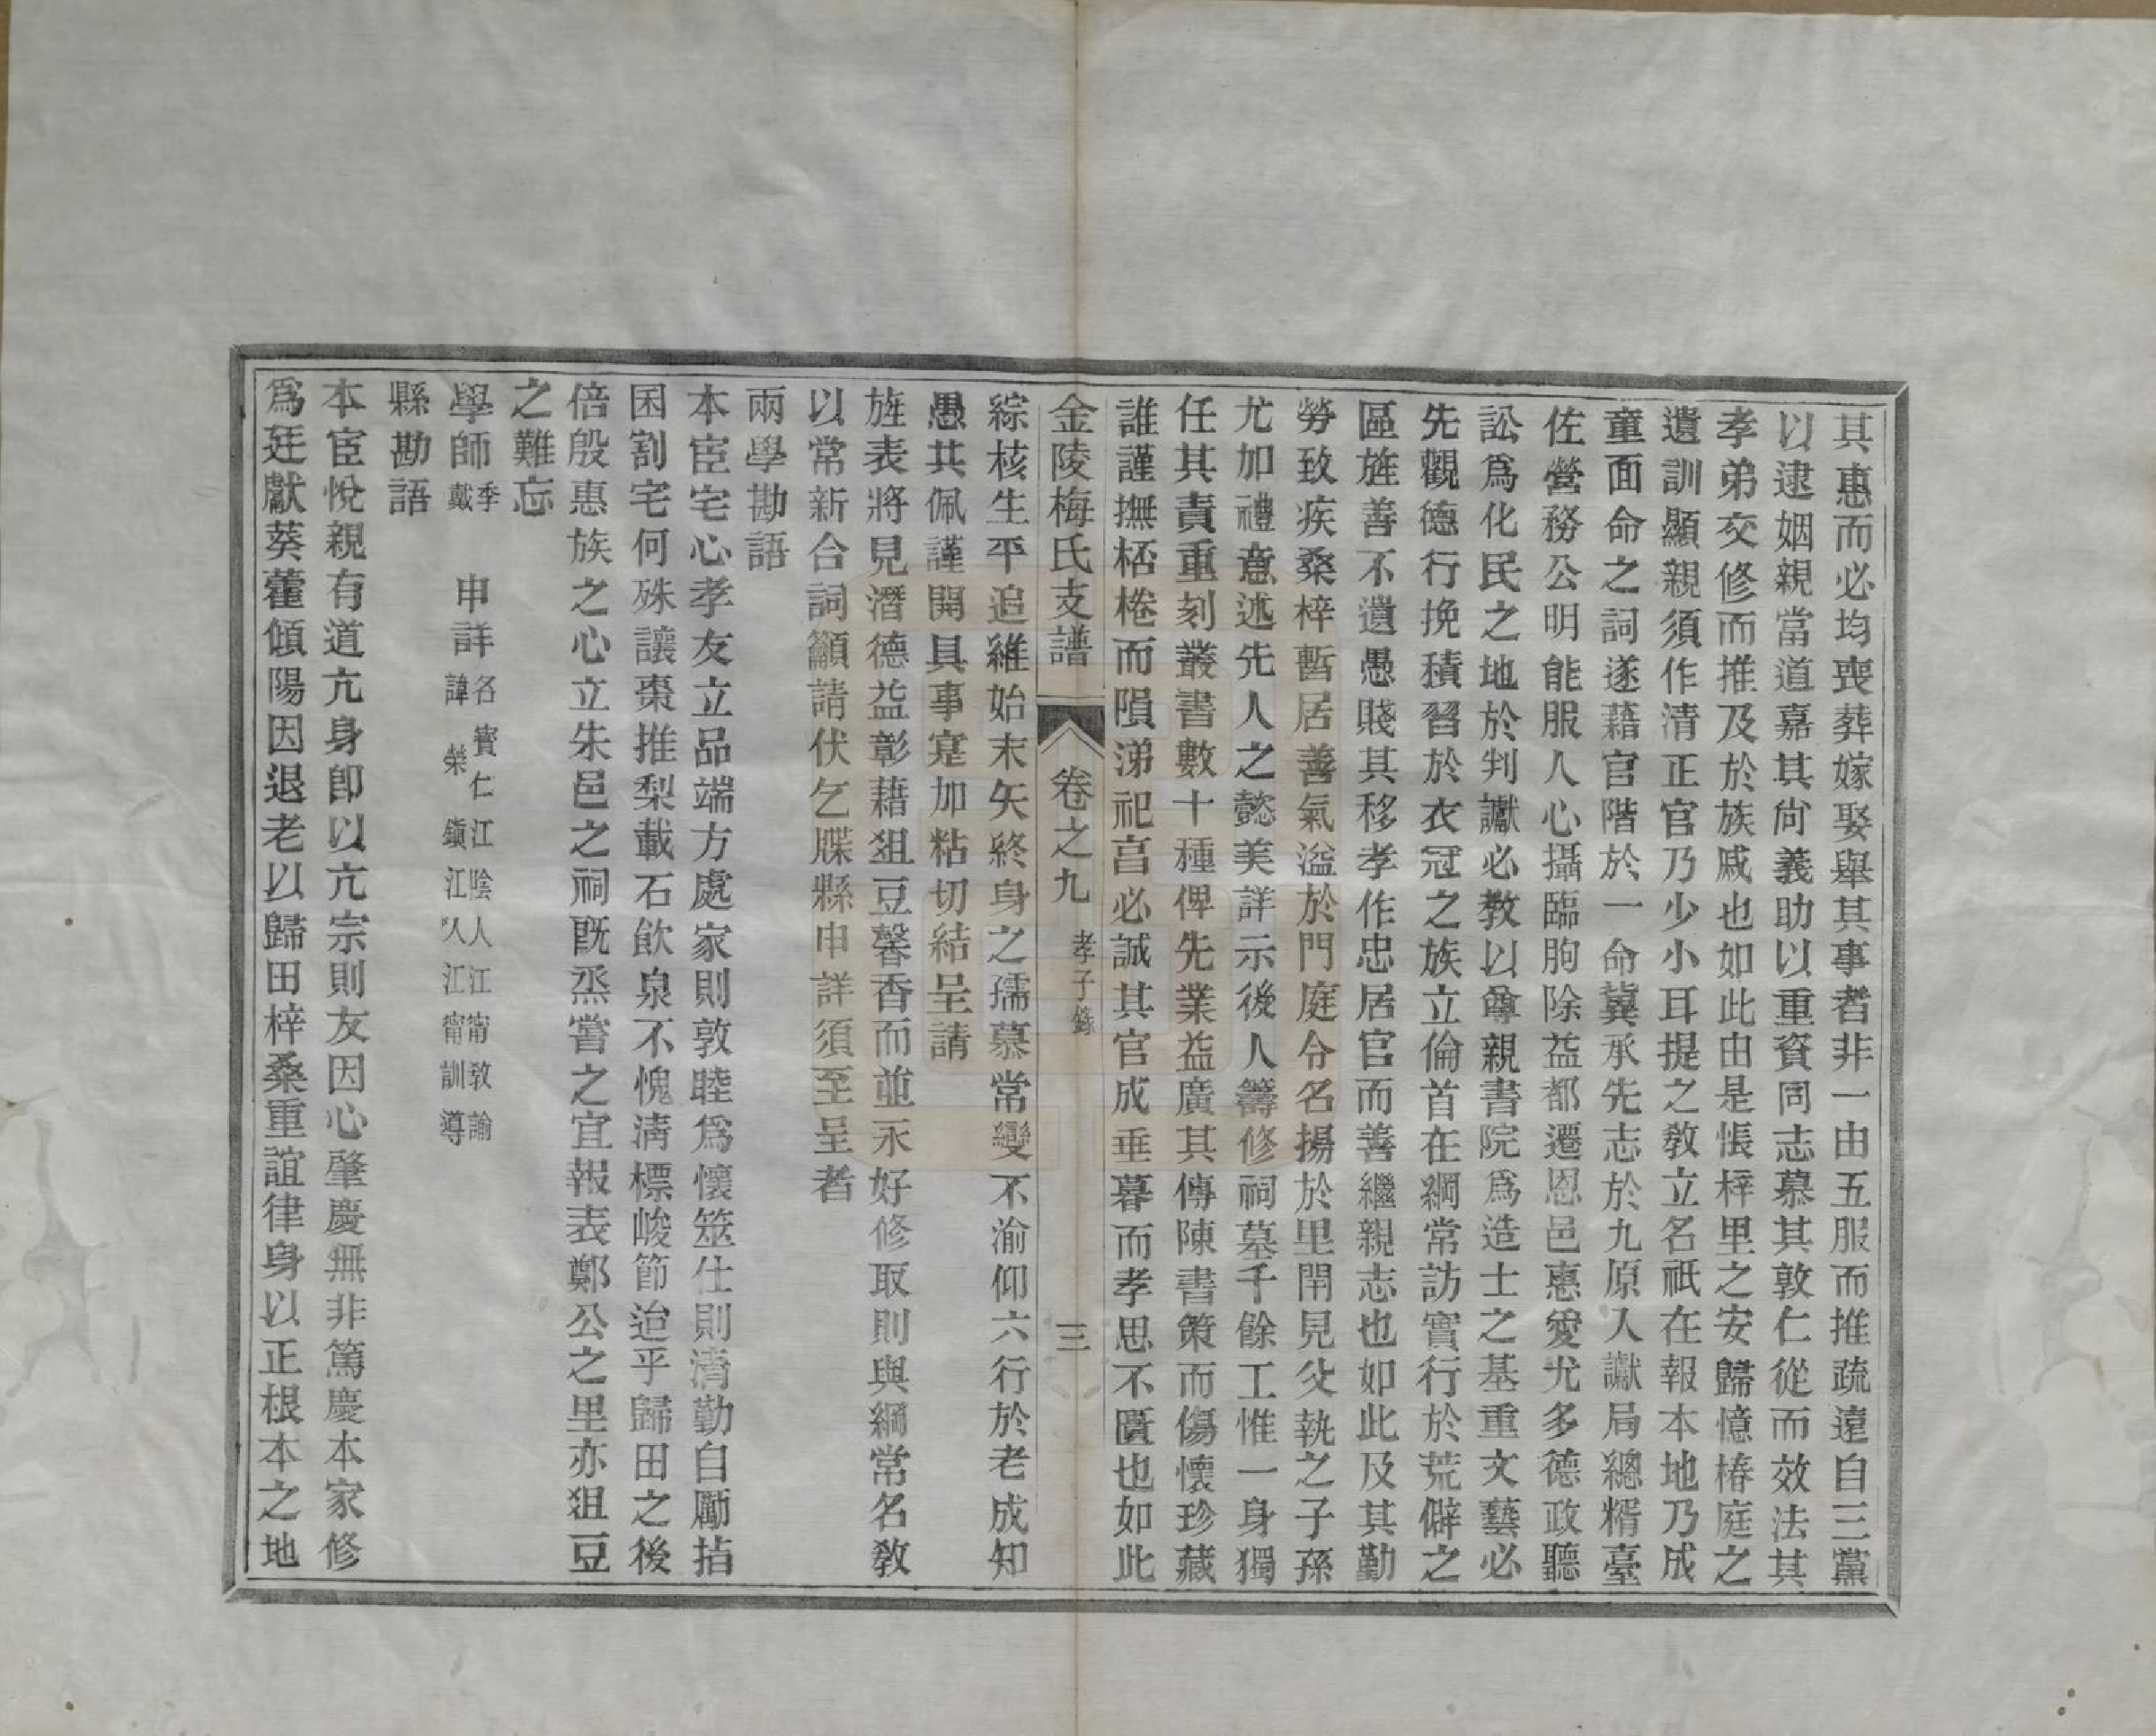 其惠而必均喪葬嫁娶舉其事者非一由五服而推疏遠自三黨
以逮姻親當道嘉其尙義助以重資同志慕其敦仁從而效法其
孝弟交修而推及於族戚也如此由是悵梓里之安歸憶椿庭之
遺訓顯親須作清正官乃少小耳提之教立名祇在報本地乃成
童面命之詞遂藉官階於一命冀承先志於九原入讞局總糈臺
佐營務公明能服人心攝臨朐除益都遷恩邑惠愛尤多德政聽
訟爲化民之地於判讞必教以尊親書院爲造士之基重文藝必
先觀德行挽積習於衣冠之族立倫首在綱常訪實行於荒僻之
區旌善不遺愚賤其移孝作忠居官而善繼親志也如此及其勤
勞致疾桑梓暫居善氣溢於門庭令名揚於里閈見父執之子孫
尤加禮意述先人之懿美詳示後人籌修祠墓千餘工惟一身獨
任其責重刻叢書數十種俾先業益廣其傳陳書策而傷懷珍藏
誰謹撫桮棬而隕涕祀享必誠其官成垂暮而孝思不匱也如此
金陵梅氏支譜 卷之九 孝子錄 三
綜核生平追維始末矢終身之孺慕常變不渝仰六行於老成知
愚共佩謹開具事寔加粘切結呈請
旌表將見潛德益彰藉俎豆馨香而並永好修取則與綱常名教
以常新合詞籲請伏乞牒縣申詳須至呈者
兩學勘語
本宦宅心孝友立品端方處家則敦睦爲懷筮仕則清勤自勵拈
囷割宅何殊讓棗推梨載石飲泉不愧淸標峻節迨乎歸田之後
倍殷惠族之心立朱邑之祠旣烝嘗之宜報表鄭公之里亦俎豆
之難忘
學師季戴 申詳名諱 寶仁榮 江陰人江甯教諭 鎭江人江甯訓導
縣勘語
本宦悅親有道亢身卽以亢宗則友因心肇慶無非篤慶本家修
爲廷獻葵藿傾陽因退老以歸田梓桑重誼律身以正根本之地